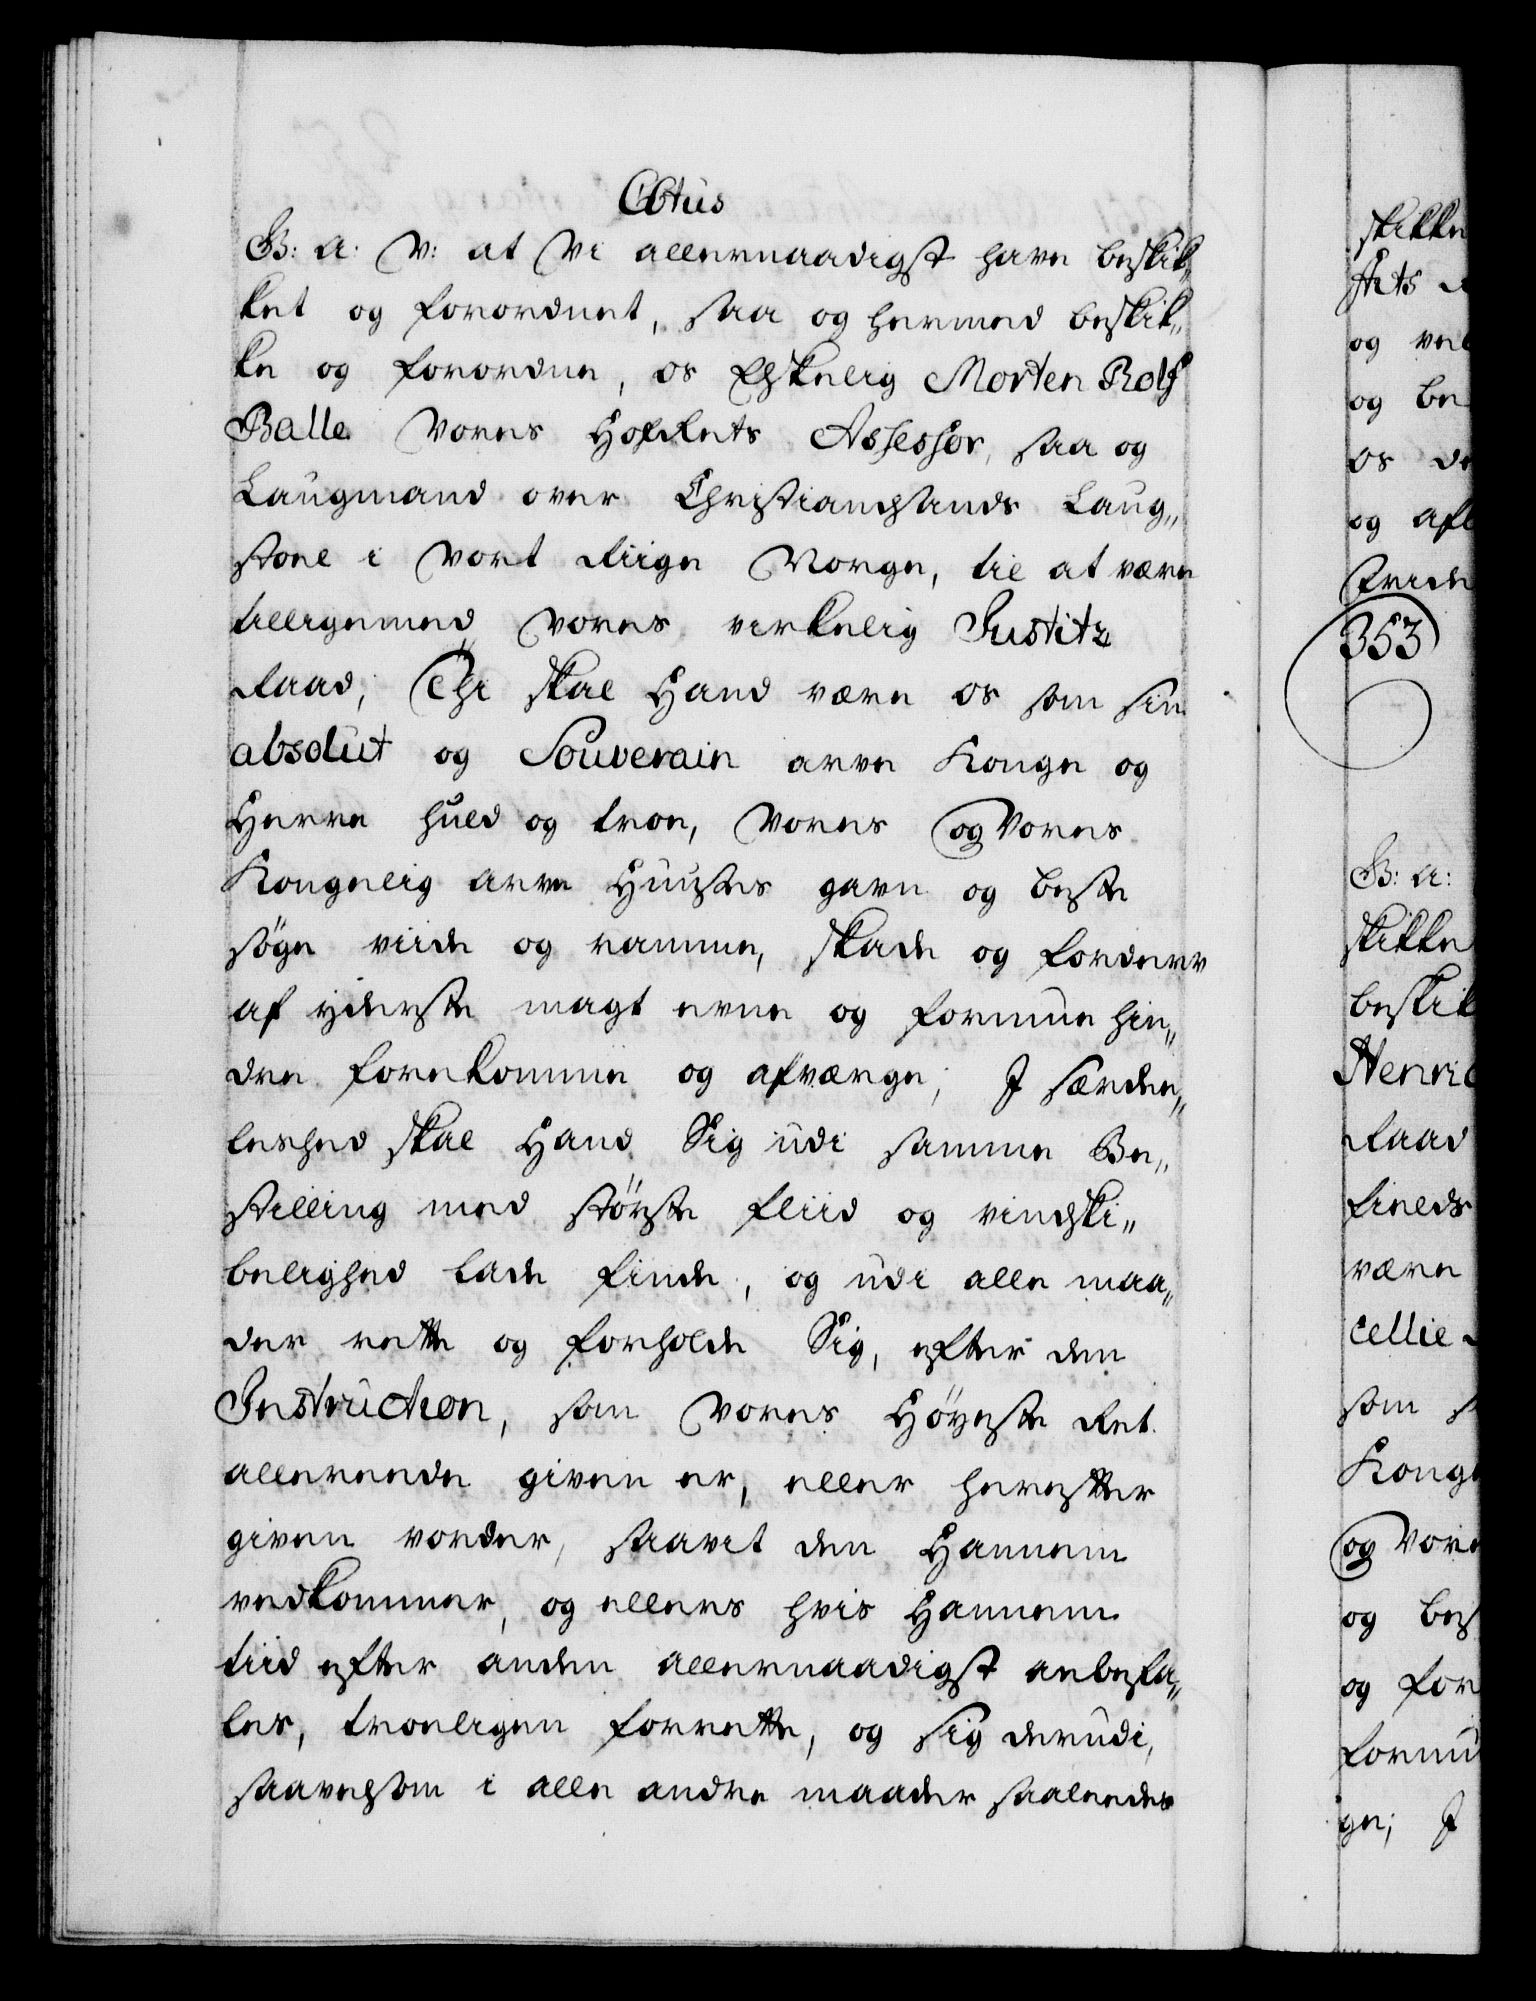 C6tus
G: A: V: at Vi allernaadigst have beskik„
ket og forordnet, saa og hermed beskik„
ke og forordne, os Elskelig Morten Rolf
Balle Vores HofRets Assessor, saa og
Laugmand over Christiansands Laug„
stoel i Vort Riige Norge, til at være
tilligemed Vores virkelig Justitz
Raad; Thi skal Hand være os som sin
absolut og Souverain arve Konge og
Herre huld og troe, Vores og Vores
Kongelig arve Huuses gavn og beste
søge viide og ramme, skade og forderv
af yderste magt evne og formue hin„
dre forekomme og afværge; J særde„
leshed skal Hand Sig udi samme Be„
stilling med störste fliid og vindski„
belighed lade finde, og udi alle maa„
der rette og forholde Sig, efter den
Instruction, som Vores Höyeste Ret
allereede given er, eller herefter
given vorder, saavit den Hannem
vedkommer, og ellers hvis Hannem
tiid efter anden allernaadigst anbefa„
les, troeligen forrette, og sig derudi,
saavelsom i alle andre maader saaledes
skikke
Rets
og vel
og be
os
og
353
G: A:
skikke
beskik
Henric
Raad
fields
være
cellie
som
Konge
og Vore
og bes
og for
formu
ge; J